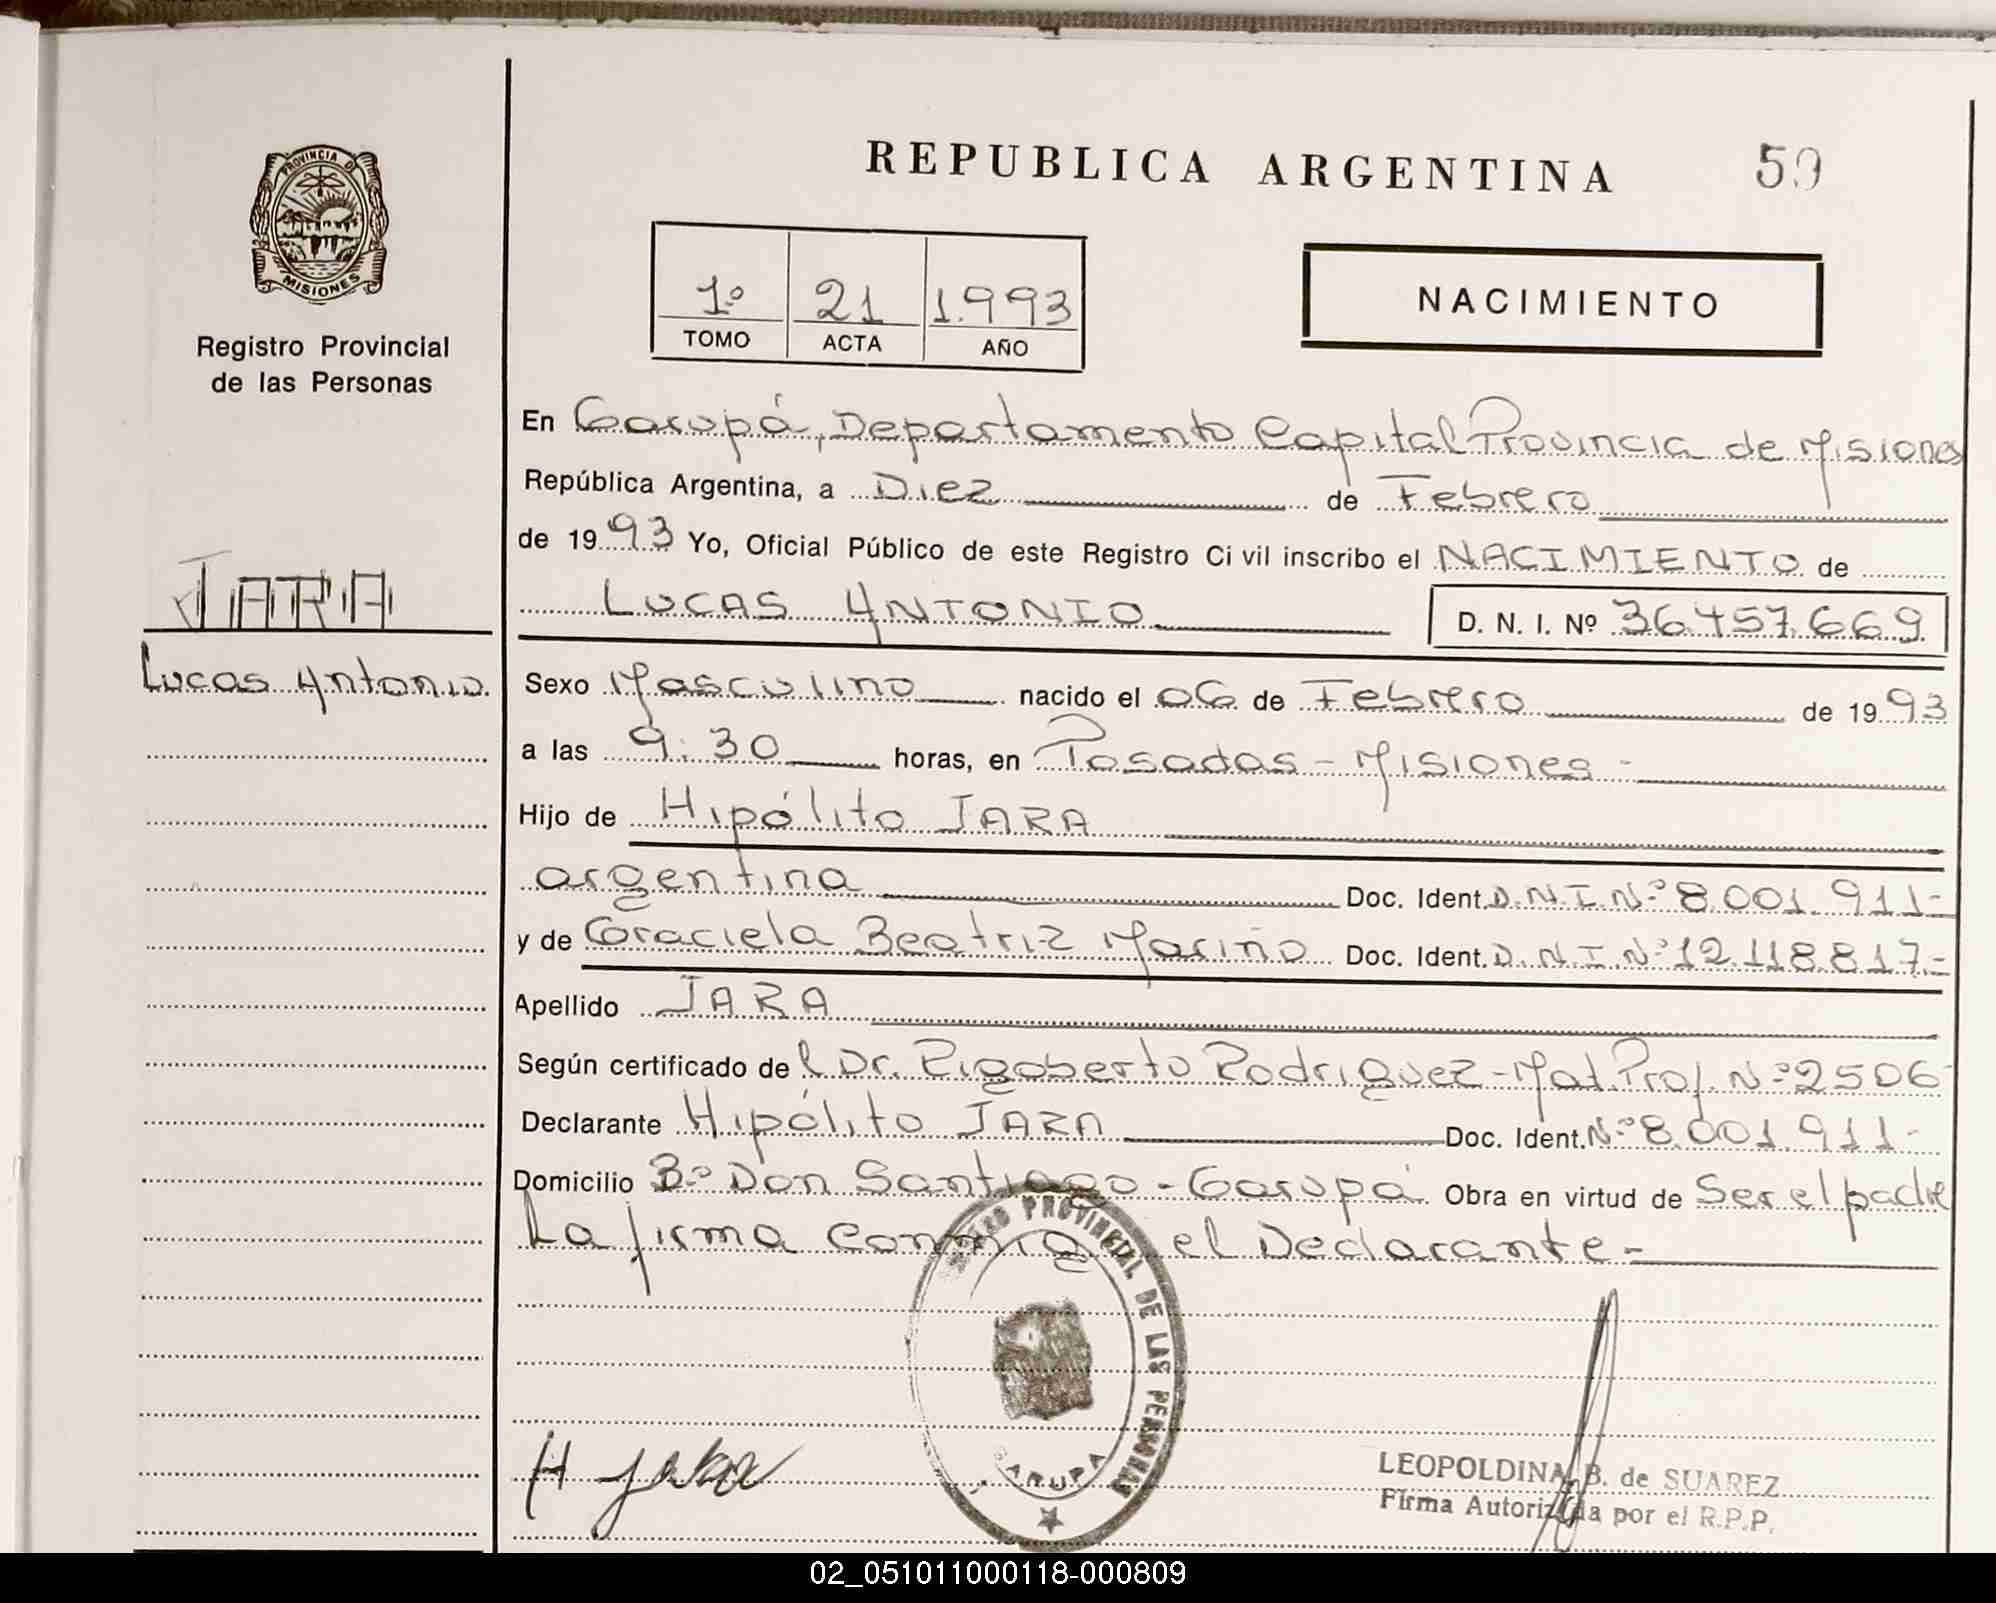 REPUBLICA ARGENTINA
59
PROVINCIA DE
MISIONES
Registro Provincial
de las Personas
1º 21 1.993
TOMO ACTA AÑO
NACIMIENTO
En Garupá, Departamento Capital Provincia de Misiones
República Argentina, a Diez de Febrero
de 1993 Yo, Oficial Público de este Registro Civil inscribo el NACIMIENTO de
LUCAS ANTONIO D. N. I. Nº 36.457.669
JARA
Lucas Antonio
Sexo Masculino nacido el 06 de Febrero de 1993
a las 9:30 horas, en Posadas - Misiones -
Hijo de Hipólito JARA
argentina Doc. Ident. D.N.I.Nº 8.001.911-
y de Graciela Beatriz Mariño Doc. Ident. D.N.I.Nº 12.118.817.-
Apellido JARA
Según certificado de l Dr. Rigoberto Rodriguez - Mat. Prof. Nº 2506
Declarante Hipólito JARA Doc. Ident. Nº 8.001.911-
Domicilio Bº Don Santiago - Garupá Obra en virtud de Ser el padre
La firma conmigo el Declarante.-
REGISTRO PROVINCIAL DE LAS PERSONAS
GARUPA
H Jara
LEOPOLDINA B. de SUAREZ
Firma Autorizada por el R.P.P.
02_051011000118-000809